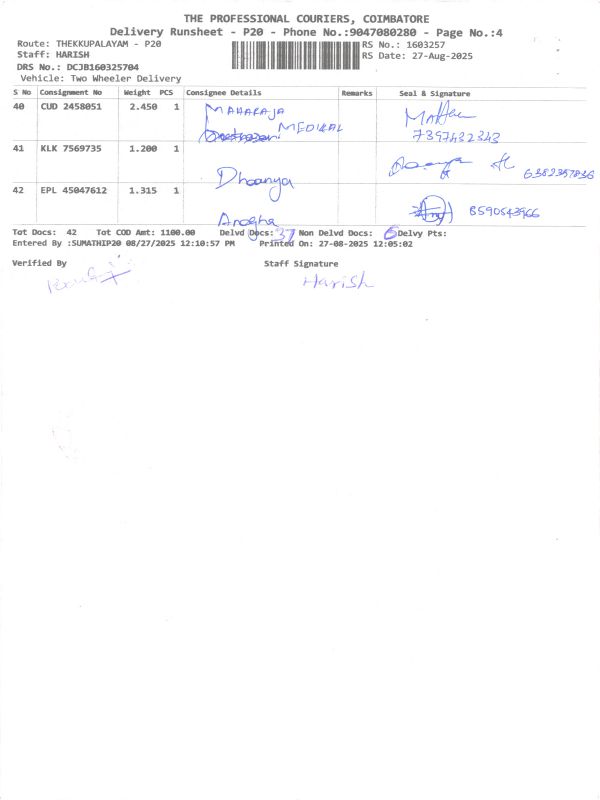 THE PROFESSIONAL COURIERS, COIMBATORE
Delivery Runsheet - P20 - Phone No.:9047080280 - Page No.:4
Route: THEKKUPALAYAM - P20 RS No.: 1603257
Staff: HARISH RS Date: 27-Aug-2025
DRS No.: DCJB160325704
Vehicle: Two Wheeler Delivery
S No Consignment No Weight PCS Consignee Details Remarks Seal & Signature
40 CUD 2458051 2.450 1 MAHARAJA
MEDICAL
7397432343
41 KLK 7569735 1.200 1
Dhoanya 6382357836
42 EPL 45047612 1.315 1
Anogha 8590543966
Tot Docs: 42 Tot COD Amt: 1100.00 Delvd Docs: 37 Non Delvd Docs: Delvy Pts:
Entered By :SUMATHIP20 08/27/2025 12:10:57 PM Printed On: 27-08-2025 12:05:02
Verified By Staff Signature
Harish